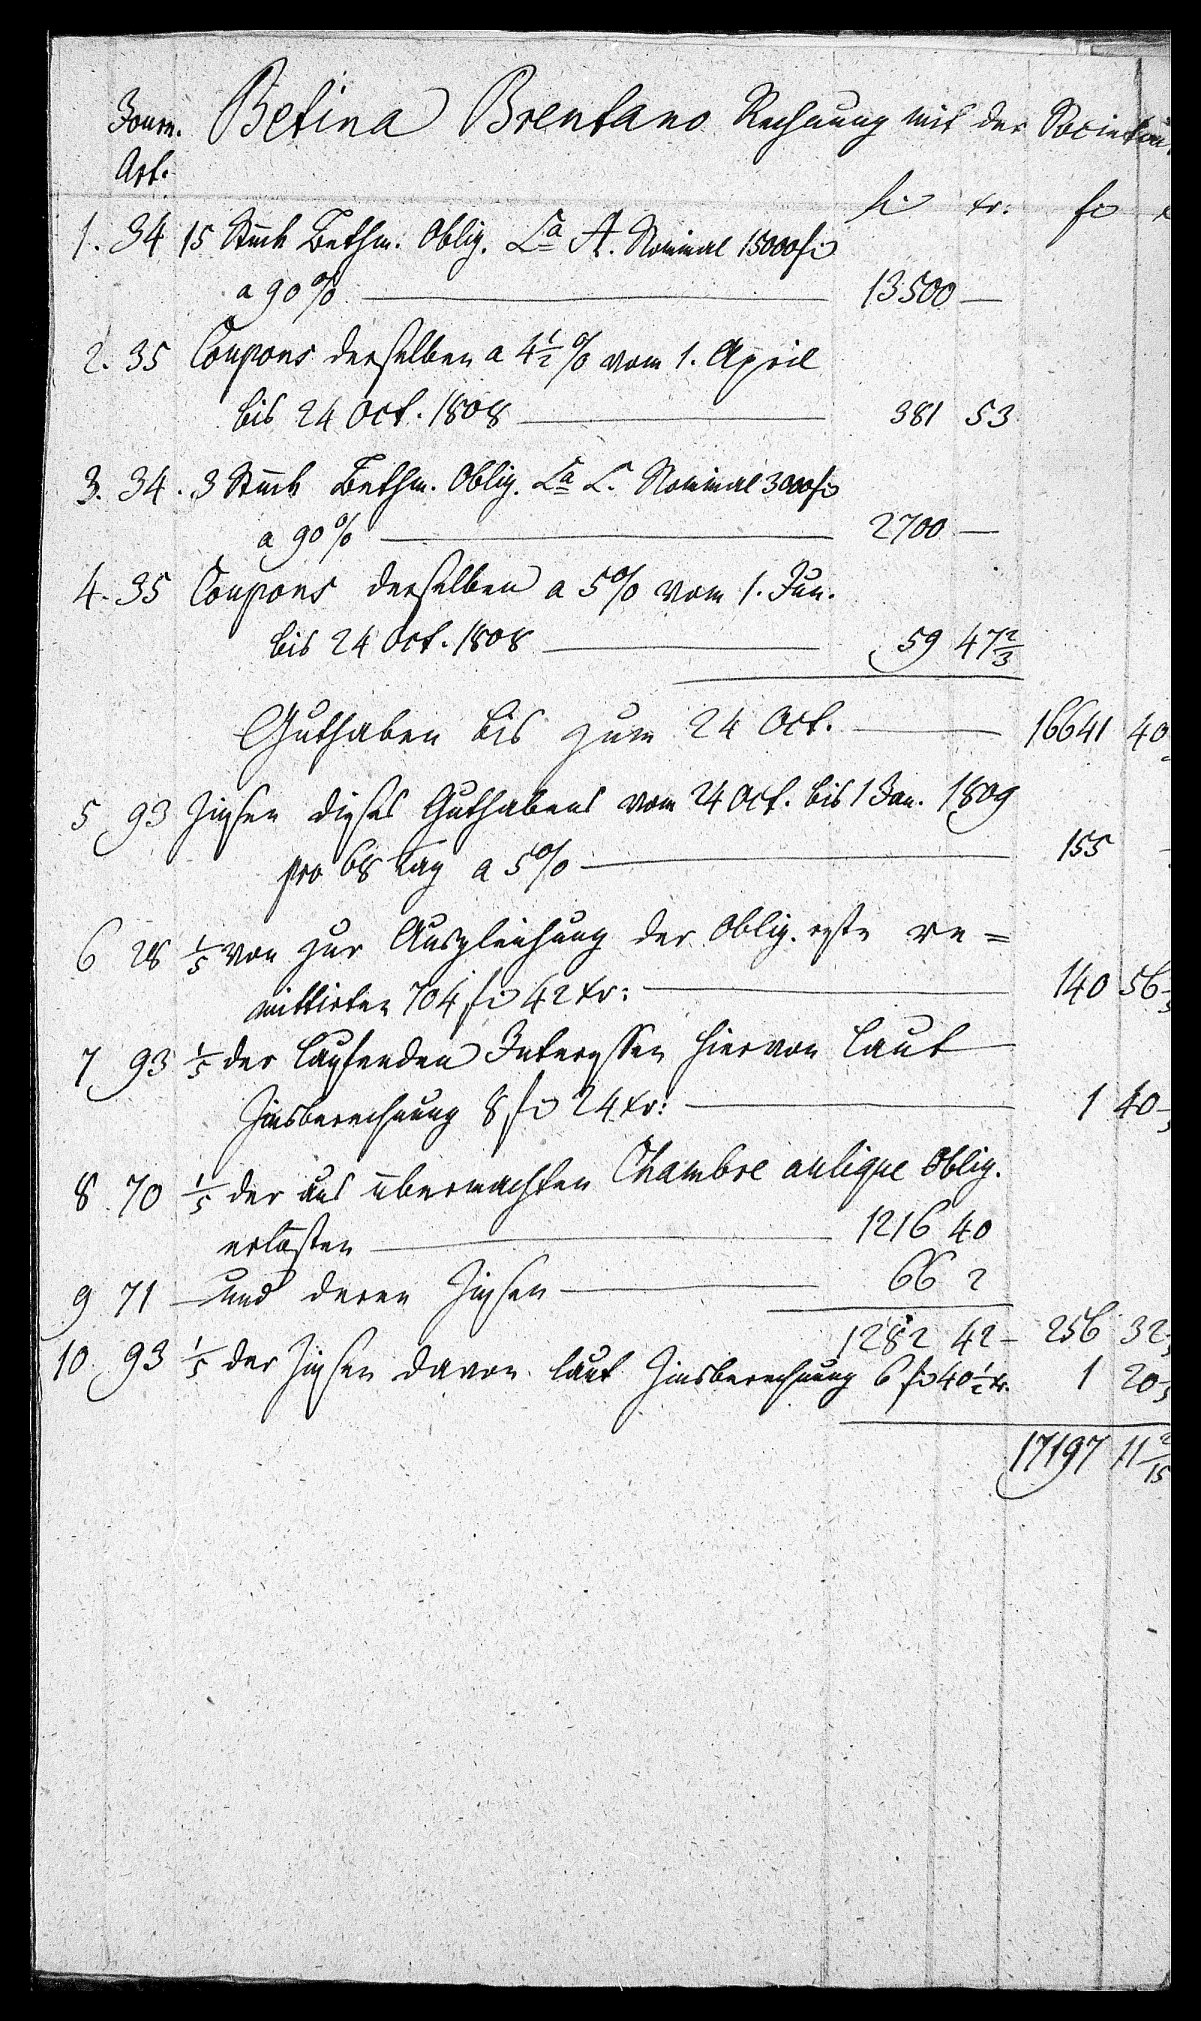 Journ. Betina Brentano Rechnung mit der Societaet
Art.
fl kr: fl
1. 34 15 Stück Bethm. Oblig. La A. Nominal 15000 fl
a 90% — 13500 —
2. 35 Coupons derselben a 4 1/2 % vom 1. April
bis 24 Oct. 1808 — 381 53
3. 34. 3 Stück Bethm. Oblig. La L. Nominal 3000 fl
a 90% — 2700 —
4. 35 Coupons derselben a 5% vom 1. Jun.
bis 24 Oct. 1808 — 59 47 2/3
Guthaben bis zum 24 Oct. — 16641 40
5 93 Zinsen dieses Guthabens vom 24 Oct. bis 1 Jan. 1809
pro 68 Tag a 5% — 155
6 28 1/5 von zur Ausgleichung der Oblig. reste re=
mittirten 704 fl 42 kr: — 140 56
7 93 1/5 der laufenden Interessen hiervon laut
Zinsberechnung 8 fl 24 kr: — 1 40
8. 70 1/5 der aus übermachten Chambre aulique Oblig.
erlösten — 1216 40
9 71 — und deren Zinsen — 66 2
1282 42 — 256 32
10. 93 1/5 der Zinsen davon laut Zinsberechnung 6 fl 40 1/2 kr. 1 20
17197 11 2/15